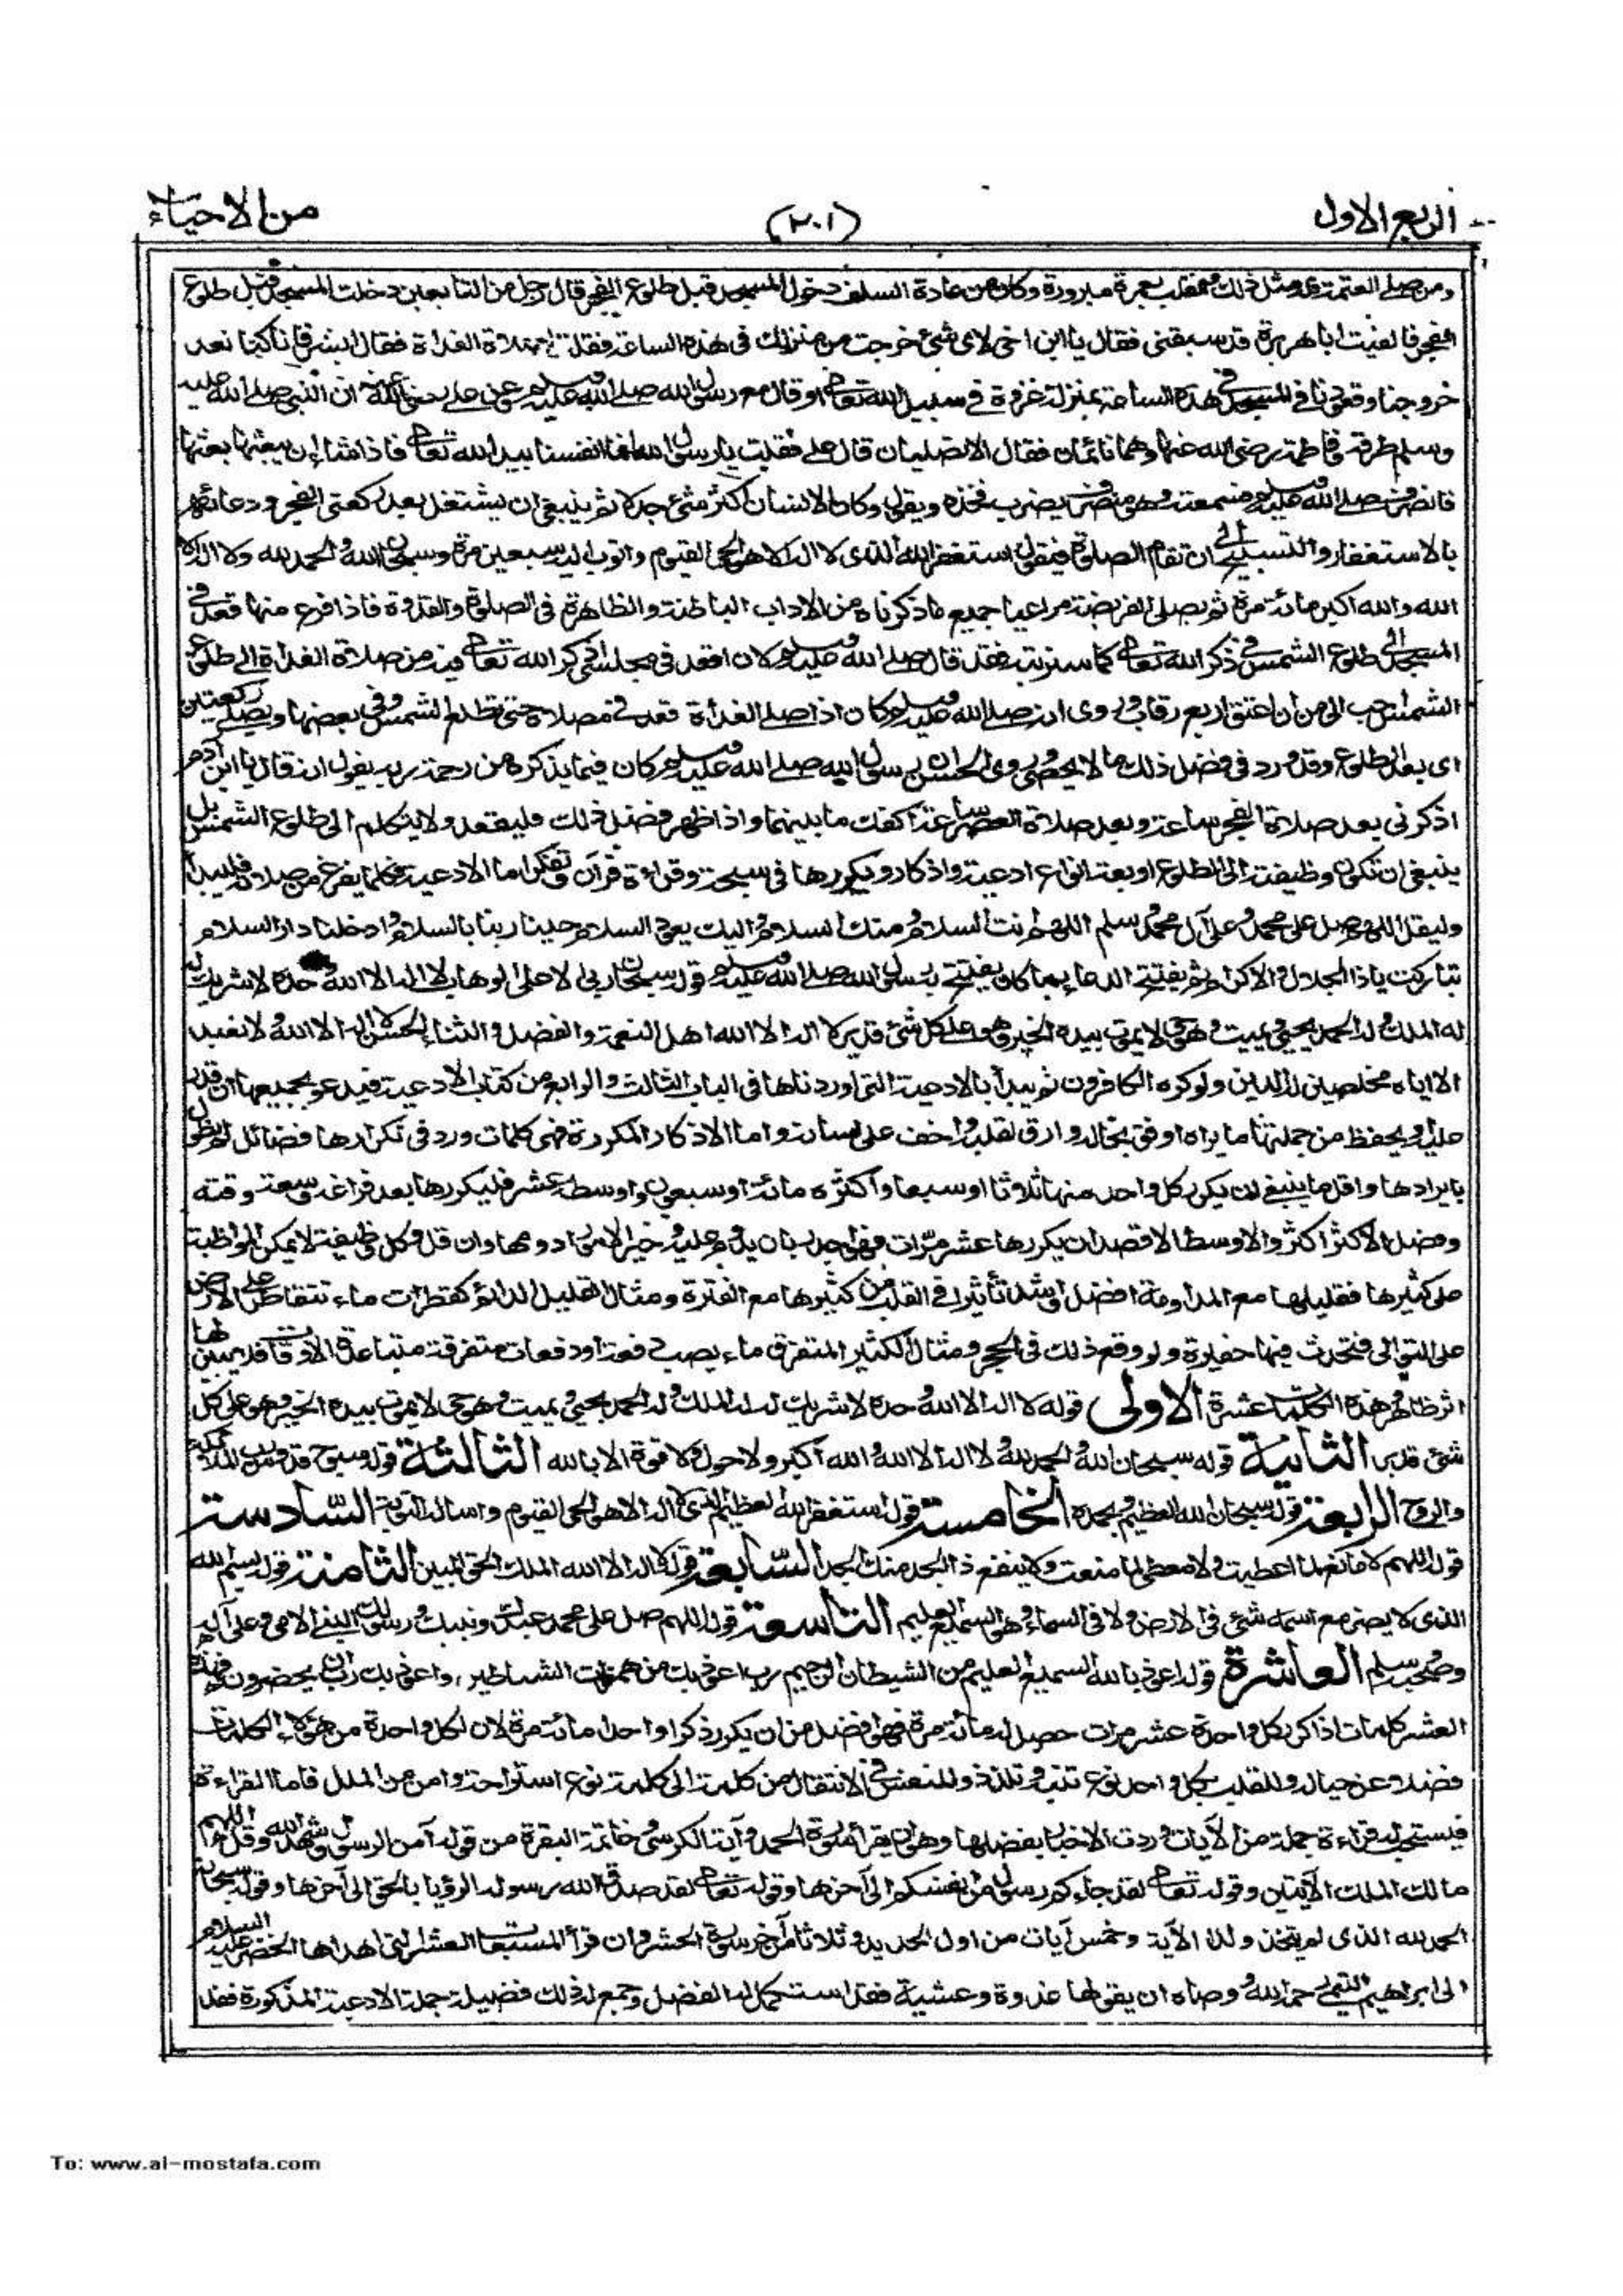 الربع الاول
(٢٠١)
من الاحياء
ومن صلى العتمة فى مثل ذلك منقلب بعمرة مبرورة وكان من عادة السلف دخول المسجد قبل طلوع الفجر قال رجل من التابعين دخلت المسجد قبل طلوع
الفجر فالفيت ابا هريرة قد سبقنى فقال يا ابن اخى لاى شئ خرجت من منزلك فى هذه الساعة فقلت لصلاة الغداة فقال ابشر فانا كنا نعد
خروجنا وقعودنا فى المسجد فى هذه الساعة بمنزلة غزوة فى سبيل الله تعالى او قال مع رسول الله صلى الله عليه وسلم وعن على رضى الله عنه ان النبى صلى الله عليه
وسلم طرقه وفاطمة رضى الله عنهما وهما نائمان فقال الا تصليان قال على فقلت يا رسول الله انما انفسنا بيد الله تعالى فاذا شاء ان يبعثها بعثها
فانصرف صلى الله عليه وسلم فسمعته وهو منصرف يضرب فخذه ويقول وكان الانسان اكثر شئ جدلا ثم ينبغى ان يشتغل بعد ركعتى الفجر ودعائه
بالاستغفار والتسبيح الى ان تقام الصلوة فيقول استغفر الله الذى لا اله الا هو الحى القيوم واتوب اليه سبعين مرة وسبحان الله والحمد لله ولا اله الا
الله والله اكبر مائة مرة ثم يصلى الفريضة مراعيا جميع ما ذكرناه من الاداب الباطنة والظاهرة فى الصلوة والقدوة فاذا فرغ منها قعد فى
المسجد الى طلوع الشمس فى ذكر الله تعالى كما سنرتبه فقد قال صلى الله عليه وسلم لان اقعد فى مجلس اذكر الله تعالى فيه من صلاة الغداة الى طلوع
الشمس احب الى من ان اعتق اربع رقاب وروى انه صلى الله عليه وسلم كان اذا صلى الغداة قعد فى مصلاه حتى تطلع الشمس وفى بعضها ويصلى ركعتين
اى بعد الطلوع وقد ورد فى فضل ذلك ما لا يحصى وروى الحسن ان رسول الله صلى الله عليه وسلم كان فيما يذكره من رحمة ربه يقول انه قال يا ابن آدم
اذكرنى بعد صلاة الفجر ساعة وبعد صلاة العصر ساعة اكفك ما بينهما واذا ظهر فضل ذلك فليقعد ولا يتكلم الى طلوع الشمس بل
ينبغى ان تكون وظيفته الى الطلوع اربعة انواع ادعية واذكار ويكررها فى سبحة وقراءة قرآن وتفكر اما الادعية فكلما يفرغ من صلاته فليبدأ
وليقل اللهم صل على محمد وعلى آل محمد وسلم اللهم انت السلام ومنك السلام واليك يعود السلام حينا ربنا بالسلام وادخلنا دار السلام
تباركت يا ذا الجلال والاكرام ثم يفتتح الدعاء بما كان يفتتح به رسول الله صلى الله عليه وسلم وهو قوله سبحان ربى الاعلى الوهاب لا اله الا الله وحده لا شريك له
له الملك وله الحمد يحيى ويميت وهو حى لا يموت بيده الخير وهو على كل شئ قدير لا اله الا الله اهل النعمة والفضل والثناء الحسن لا اله الا الله ولا نعبد
الا اياه مخلصين له الدين ولو كره الكافرون ثم يبدأ بالادعية التى اوردناها فى الباب الثالث والرابع من كتاب الادعية فيدعو بجميعها ان قدر
عليه او يحفظ من جملتها ما يراه اوفق بحاله وارق لقلبه واخف على لسانه واما الاذكار المكررة فهى كلمات ورد فى تكرارها فضائل لم نطول
بايرادها واقل ما ينبغى ان يكرر كل واحد منها ثلاثا او سبعا واكثره مائة او سبعون واوسطه عشر فليكررها بعد فراغه وسعة وقته
وفضل الاكثر اكثر والاوسط الاقصد ان يكررها عشر مرات فهو اجدر بان يدوم عليه وخير الامور ادومها وان قل وكل وظيفة لا يمكن المواظبة
على كثيرها فقليلها مع المداومة افضل واشد تأثيرا فى القلب من كثيرها مع الفترة ومثال القليل الدائم كقطرات ماء تتقاطر على الارض
على التوالى فتحدث فيها حفيرة ولو وقع ذلك فى الحجر ومثال الكثير المتفرق ماء يصب دفعة او دفعات متفرقة متباعدة الاوقات فلا يبين لها
اثر ظاهر وهذه الكلمات عشرة الاولى قوله لا اله الا الله وحده لا شريك له له الملك وله الحمد يحيى ويميت وهو حى لا يموت بيده الخير وهو على كل
شئ قدير الثانية قوله سبحان الله والحمد لله ولا اله الا الله والله اكبر ولا حول ولا قوة الا بالله الثالثة قوله سبوح قدوس رب الملائكة
والروح الرابعة قوله سبحان الله العظيم وبحمده الخامسة قوله استغفر الله العظيم الذى لا اله الا هو الحى القيوم واساله التوبة السادسة
قوله اللهم لا مانع لما اعطيت ولا معطى لما منعت ولا ينفع ذا الجد منك الجد السابعة قوله لا اله الا الله الملك الحق المبين الثامنة قوله بسم الله
الذى لا يضر مع اسمه شئ فى الارض ولا فى السماء وهو السميع العليم التاسعة قوله اللهم صل على محمد عبدك ونبيك ورسولك النبى الامى وعلى آله
وصحبه وسلم العاشرة قوله اعوذ بالله السميع العليم من الشيطان الرجيم رب اعوذ بك من همزات الشياطين واعوذ بك رب ان يحضرون فهذه
العشر كلمات اذا كرر كل واحدة عشر مرات حصل له مائة مرة فهو افضل من ان يكرر ذكرا واحدا مائة مرة لان لكل واحدة من هؤلاء الكلمات
فضلا على حياله وللقلب بكل واحد نوع تنبه وتلذذ وللنفس فى الانتقال من كلمة الى كلمة نوع استراحة وامن من الملل فاما القراءة
فيستحب له قراءة جملة من الآيات وردت الاخبار بفضلها وهو ان يقرأ سورة الحمد وآية الكرسى وخاتمة البقرة من قوله آمن الرسول وشهد الله وقل اللهم
مالك الملك الآيتين وقوله تعالى لقد جاءكم رسول من انفسكم الى آخرها وقوله تعالى لقد صدق الله رسوله الرؤيا بالحق الى آخرها وقوله سبحانه
الحمد لله الذى لم يتخذ ولدا الآية وخمس آيات من اول الحديد وثلاثا من آخر سورة الحشر وان قرأ المسبعات العشر التى اهداها الخضر عليه السلام
الى ابراهيم التيمى رحمه الله ووصاه ان يقولها غدوة وعشية فقد استكمل له الفضل وجمع له ذلك فضيلة جملة الادعية المذكورة فقد
To: www.al-mostafa.com